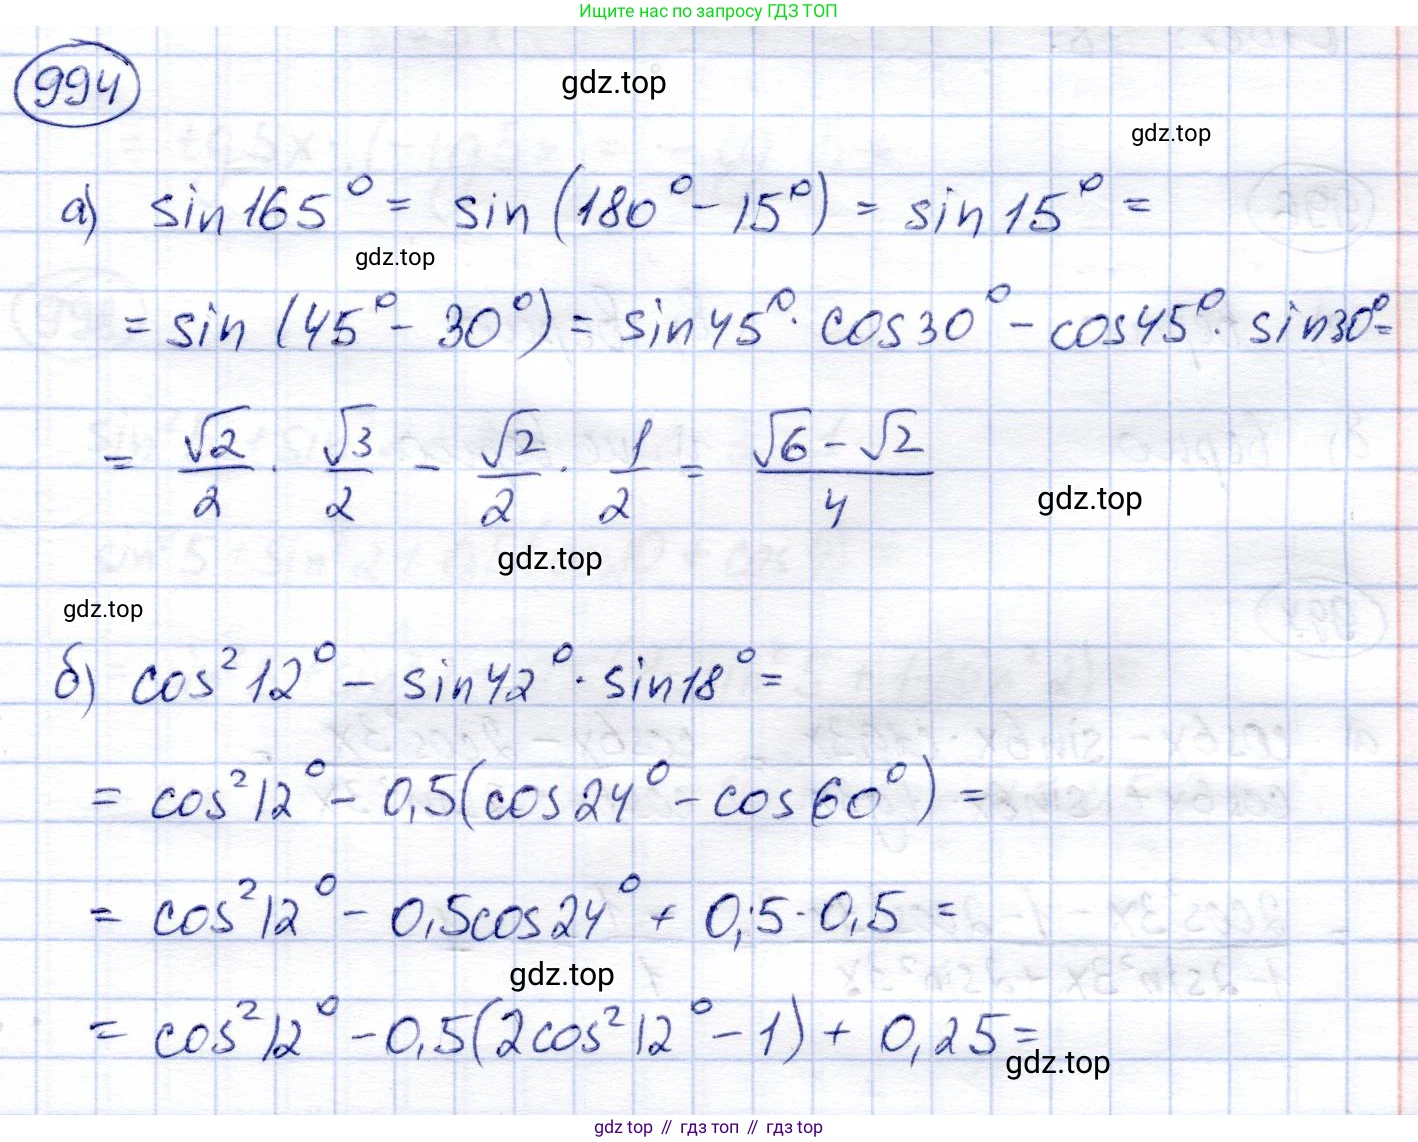 Ищите нас по запросу ГДЗ ТОП
994
gdz.top
gdz.top
а) sin 165° = sin (180° - 15°) = sin 15° =
gdz.top
= sin (45° - 30°) = sin 45° · cos 30° - cos 45° · sin 30° =
= √2/2 · √3/2 - √2/2 · 1/2 = (√6 - √2)/4
gdz.top
gdz.top
gdz.top
б) cos² 12° - sin 42° · sin 18° =
= cos² 12° - 0,5 (cos 24° - cos 60°) =
= cos² 12° - 0,5 cos 24° + 0,5 · 0,5 =
gdz.top
= cos² 12° - 0,5 (2 cos² 12° - 1) + 0,25 =
gdz.top
gdz top // гдз топ // гдз top